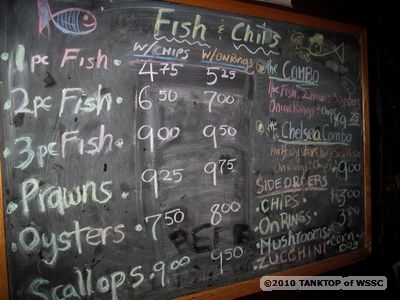 Fish & Chits
w/CHIPS w/ONRINGS
1pc Fish 4.75 5.25
2pc Fish 6.50 7.00
3pc Fish 9.00 9.50
Prawns 9.25 9.75
Oysters 7.50 8.00
Scallops 9.00 9.50
the COMBO
1pc Fish, 2 Prawns, Oysters
Onion Rings + Chips
the Chelsea Combo
half Oysters half Scallops
OnRings + Chips 9.00
SIDE ORDERS
CHIPS 3.00
OnRINGS
Mushrooms
ZUCCHINI corn DOG
BEER
©2010 TANKTOP of WSSC